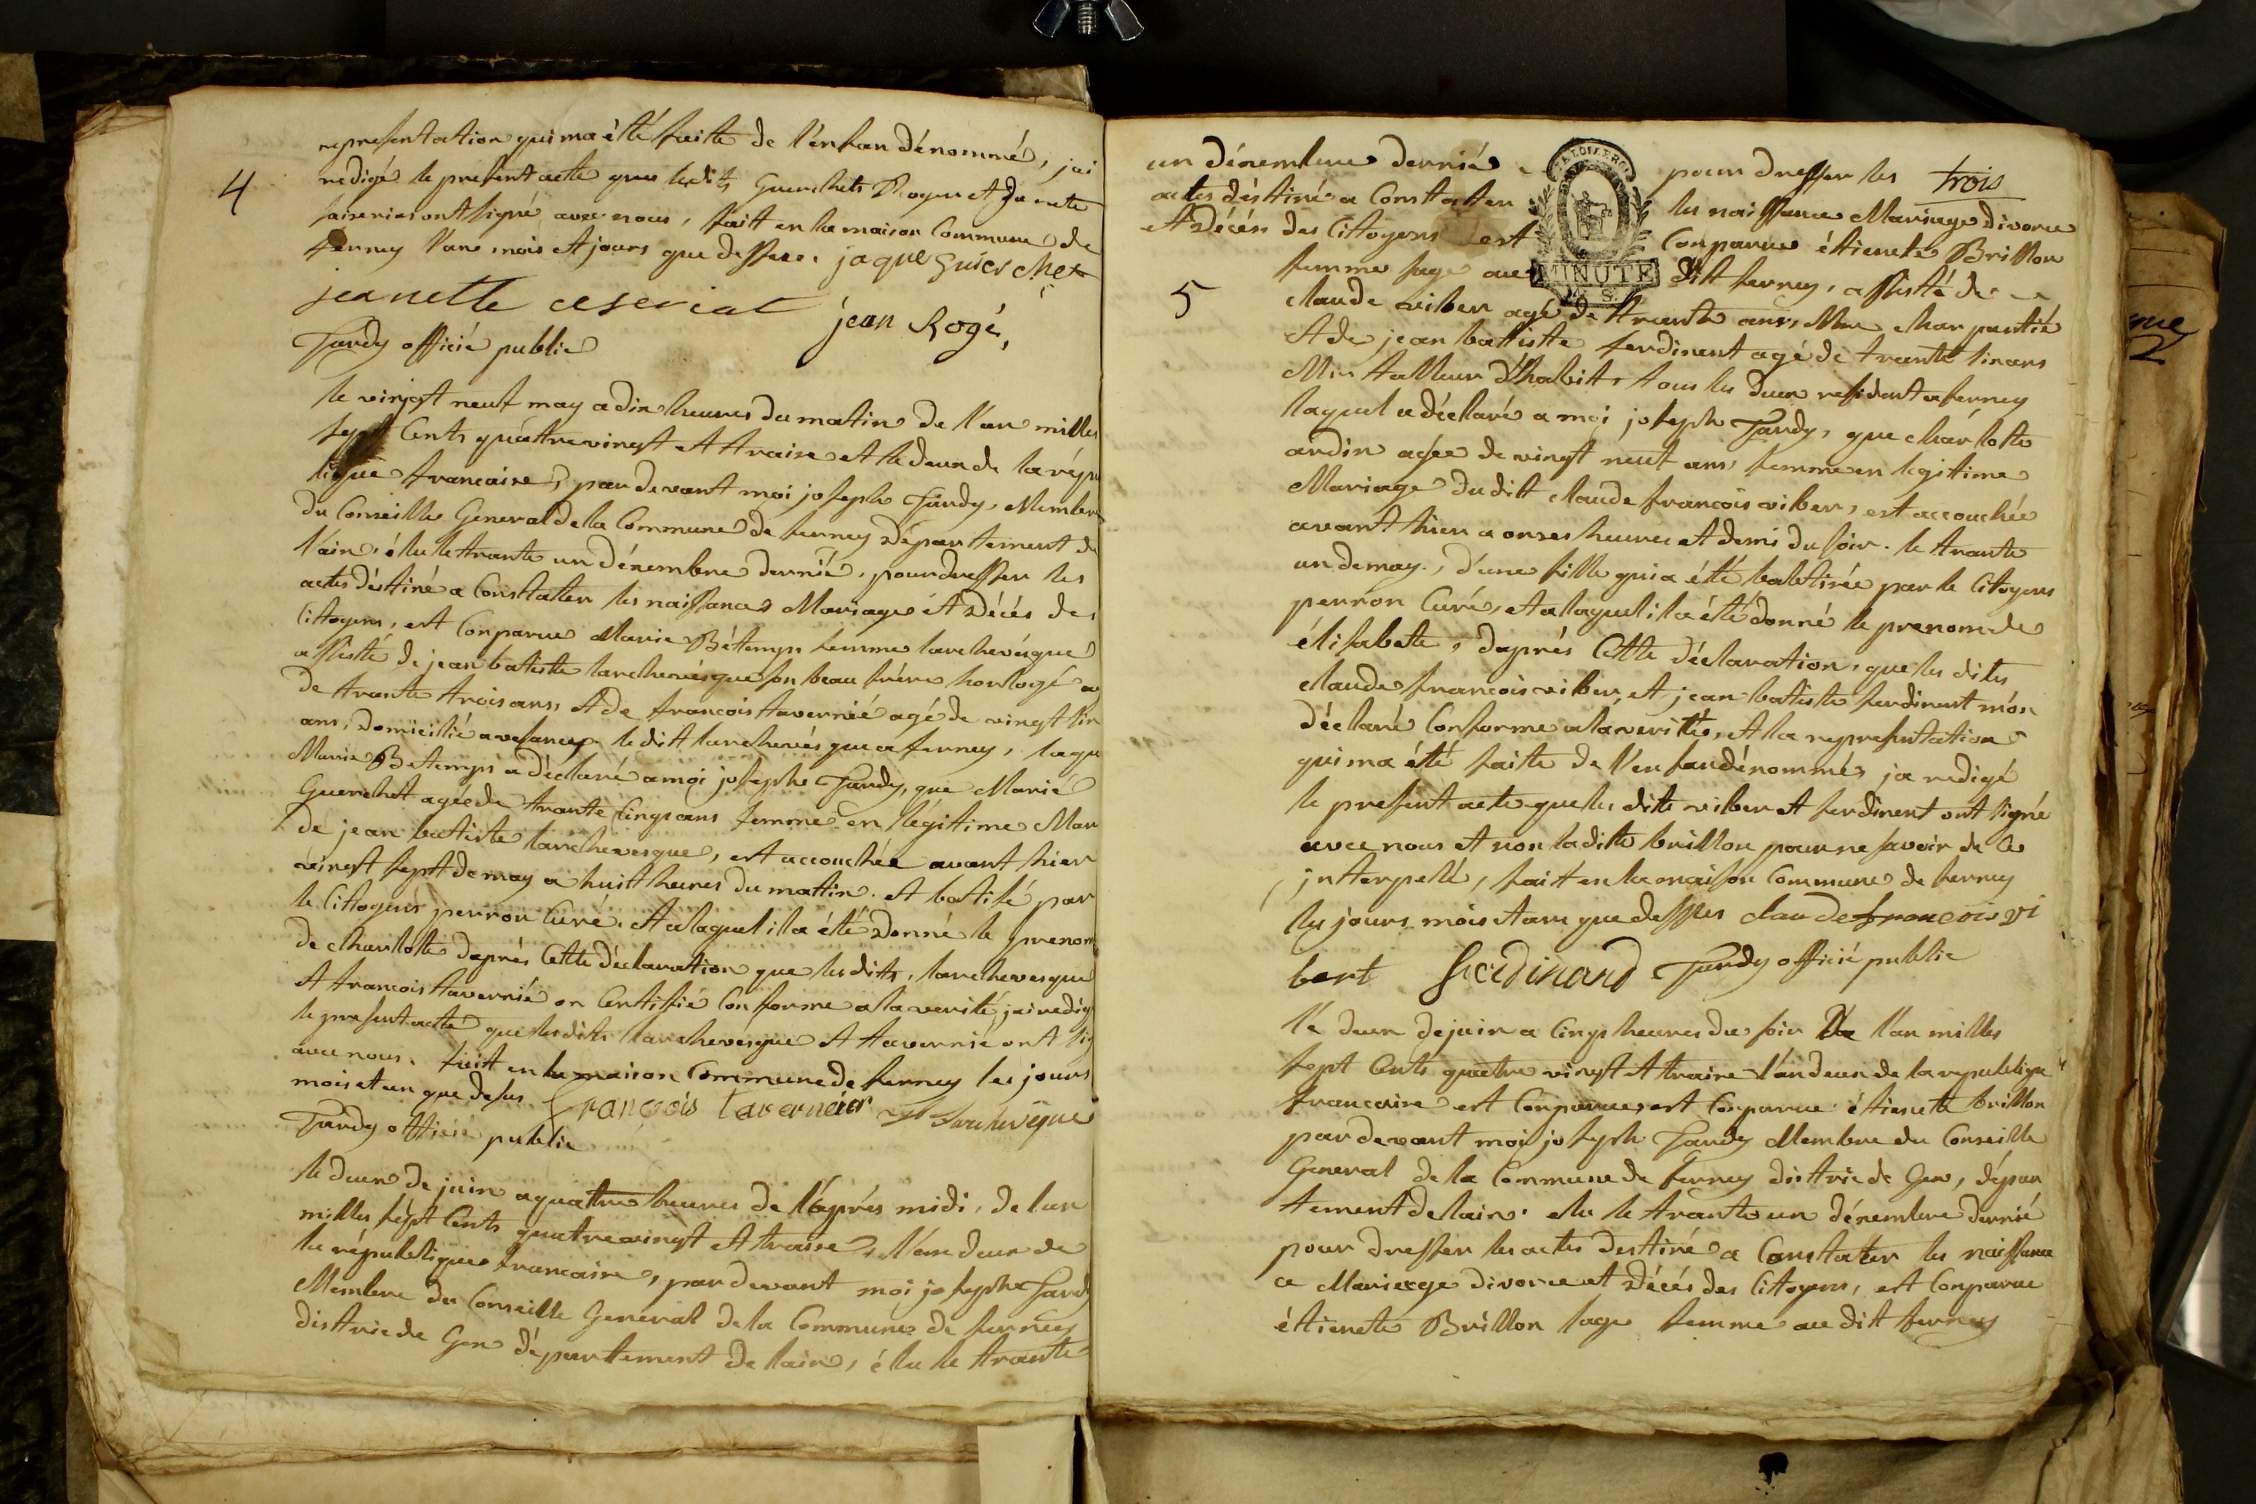 representation qui ma été faitte de l'enfan dénommé, jai
4
redigé le present acte que lesdits Guerchets Rogu et
ont signé avec nous, fait en la maison Commune de
ferney l'an mois et jours que dessus. jaque guerchet
jeanette
jean Rogé,
Tardy officié public
le vingt neuf may a dix heures du matin de l'an milles
sept Cents quatrevingt et traise et le deux de la répu
lique francaise, par devant moi joseph Tardy, Membre
du Conseille General de la Commune de ferney département de
l'ain. élu le trante un désembre dernié, pour dresser les
actes déstiné a Constater les naissances Mariage et Décés des
Cittoyens, est Conparue Marie Bétemps femme larchevésque
assisté de jean batiste larchevésque son beau frére horlogé a
de trante trois ans, et de francois tavernié agé de vingt six
ans, domicilié a le dit larchevésque a ferney, laque
Marie Betemps a déclaré a moi joseph Tardy, que Marie
Guerchet agée de trante Cinq ans femme en légitime Mar
de jean batiste larchevesque, est accouchée avant hier
vingt sept de may a huit heures du mattin. et batisé par
le Cittoyens perron Curé. et a laquel il a été donné le prenom
de charlotte daprés Cette déclaration que lesdits, larchevesque
et francois tavernié on Certifié Conforme a la verité, jai redig
le present acte que lesdits larchevésque et tavernié ont sig
avec nous. fait en la maison Commune de ferney les jours
mois et an que desus françois taverneier Larchevéque
Tardy officié public
le deux de juin a quatre heures de l'après midi, de l'an
milles sépt Cents quatrevingt et traise, l'an deux de
la républiques francaise, par devant moi joseph Tardy
Membre du Conseille General de la Commune de ferney
distric de Gex département de lain, élu le trante
un désembre dernié pour dresser les trois
actes déstiné a Constater les naissance Mariage divorce
et Décés des Cittoyens est Conparue étienete Brillon
MINUTE
femme sage au dit ferney, assisté de
5
claude viber agé de trante ans, Mtre charpantié
et de jean battiste ferdinent agé de trante six ans
Mtre tallieur d'habit, tous les deux residant a ferney
laquel a déclaré a moi joseph Tardy, que charlotte
ardin agée de vingt neuf ans, femme en legitime
Mariage dudit claude francois viber, est accouchée
avant hier a onses heures et demi du soir. le trante
un de may, d'une fille qui a été babtisée par le Cittoyens
perron Curé, et a laquel il a été donné le prenom de
élisabete, daprés Cette déclaration, que les dits
claude francois viber, et jean batiste ferdinent món
déclaré Conforme a la verittés, et la representation
qui ma été faite de l'enfan dénommés ja redigé
le présent acte que les dits viber et ferdinent ont signé
avec nous et non la ditte brillon pour ne savoir de ce
interpelé, fait en la maison Commune de ferney
les jours mois et an que dessus claude francois vi
bert ferdinand Tardy officié public
lé deux de juin a Cinqs heures du soir De l'an milles
sept Cents quatre vingt et traise l'an deux de la republique
francaise est Conparue, est Conparue étienette brillon
par devant moi joseph Tardy Membre du Conseille
General de la Commune de ferney distric de Gex, dépar
tement de lain. elu le trante un désembre dernié
pour dresser les actes destiné a Constater les naissance
a Mariage divorce et Décés des Cittoyens, est Conparue
étienete Brillon sage femme au dit ferney